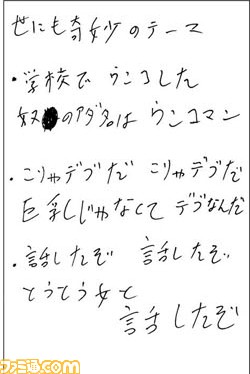 世にも奇妙のテーマ
・学校でうんこした
奴のアダ名はうんコマン
・こりゃデブだ こりゃデブだ
巨乳じゃなくて デブなんだ
・話したぞ 話したぞ
とうとう女と
話したぞ
ファミ通.com